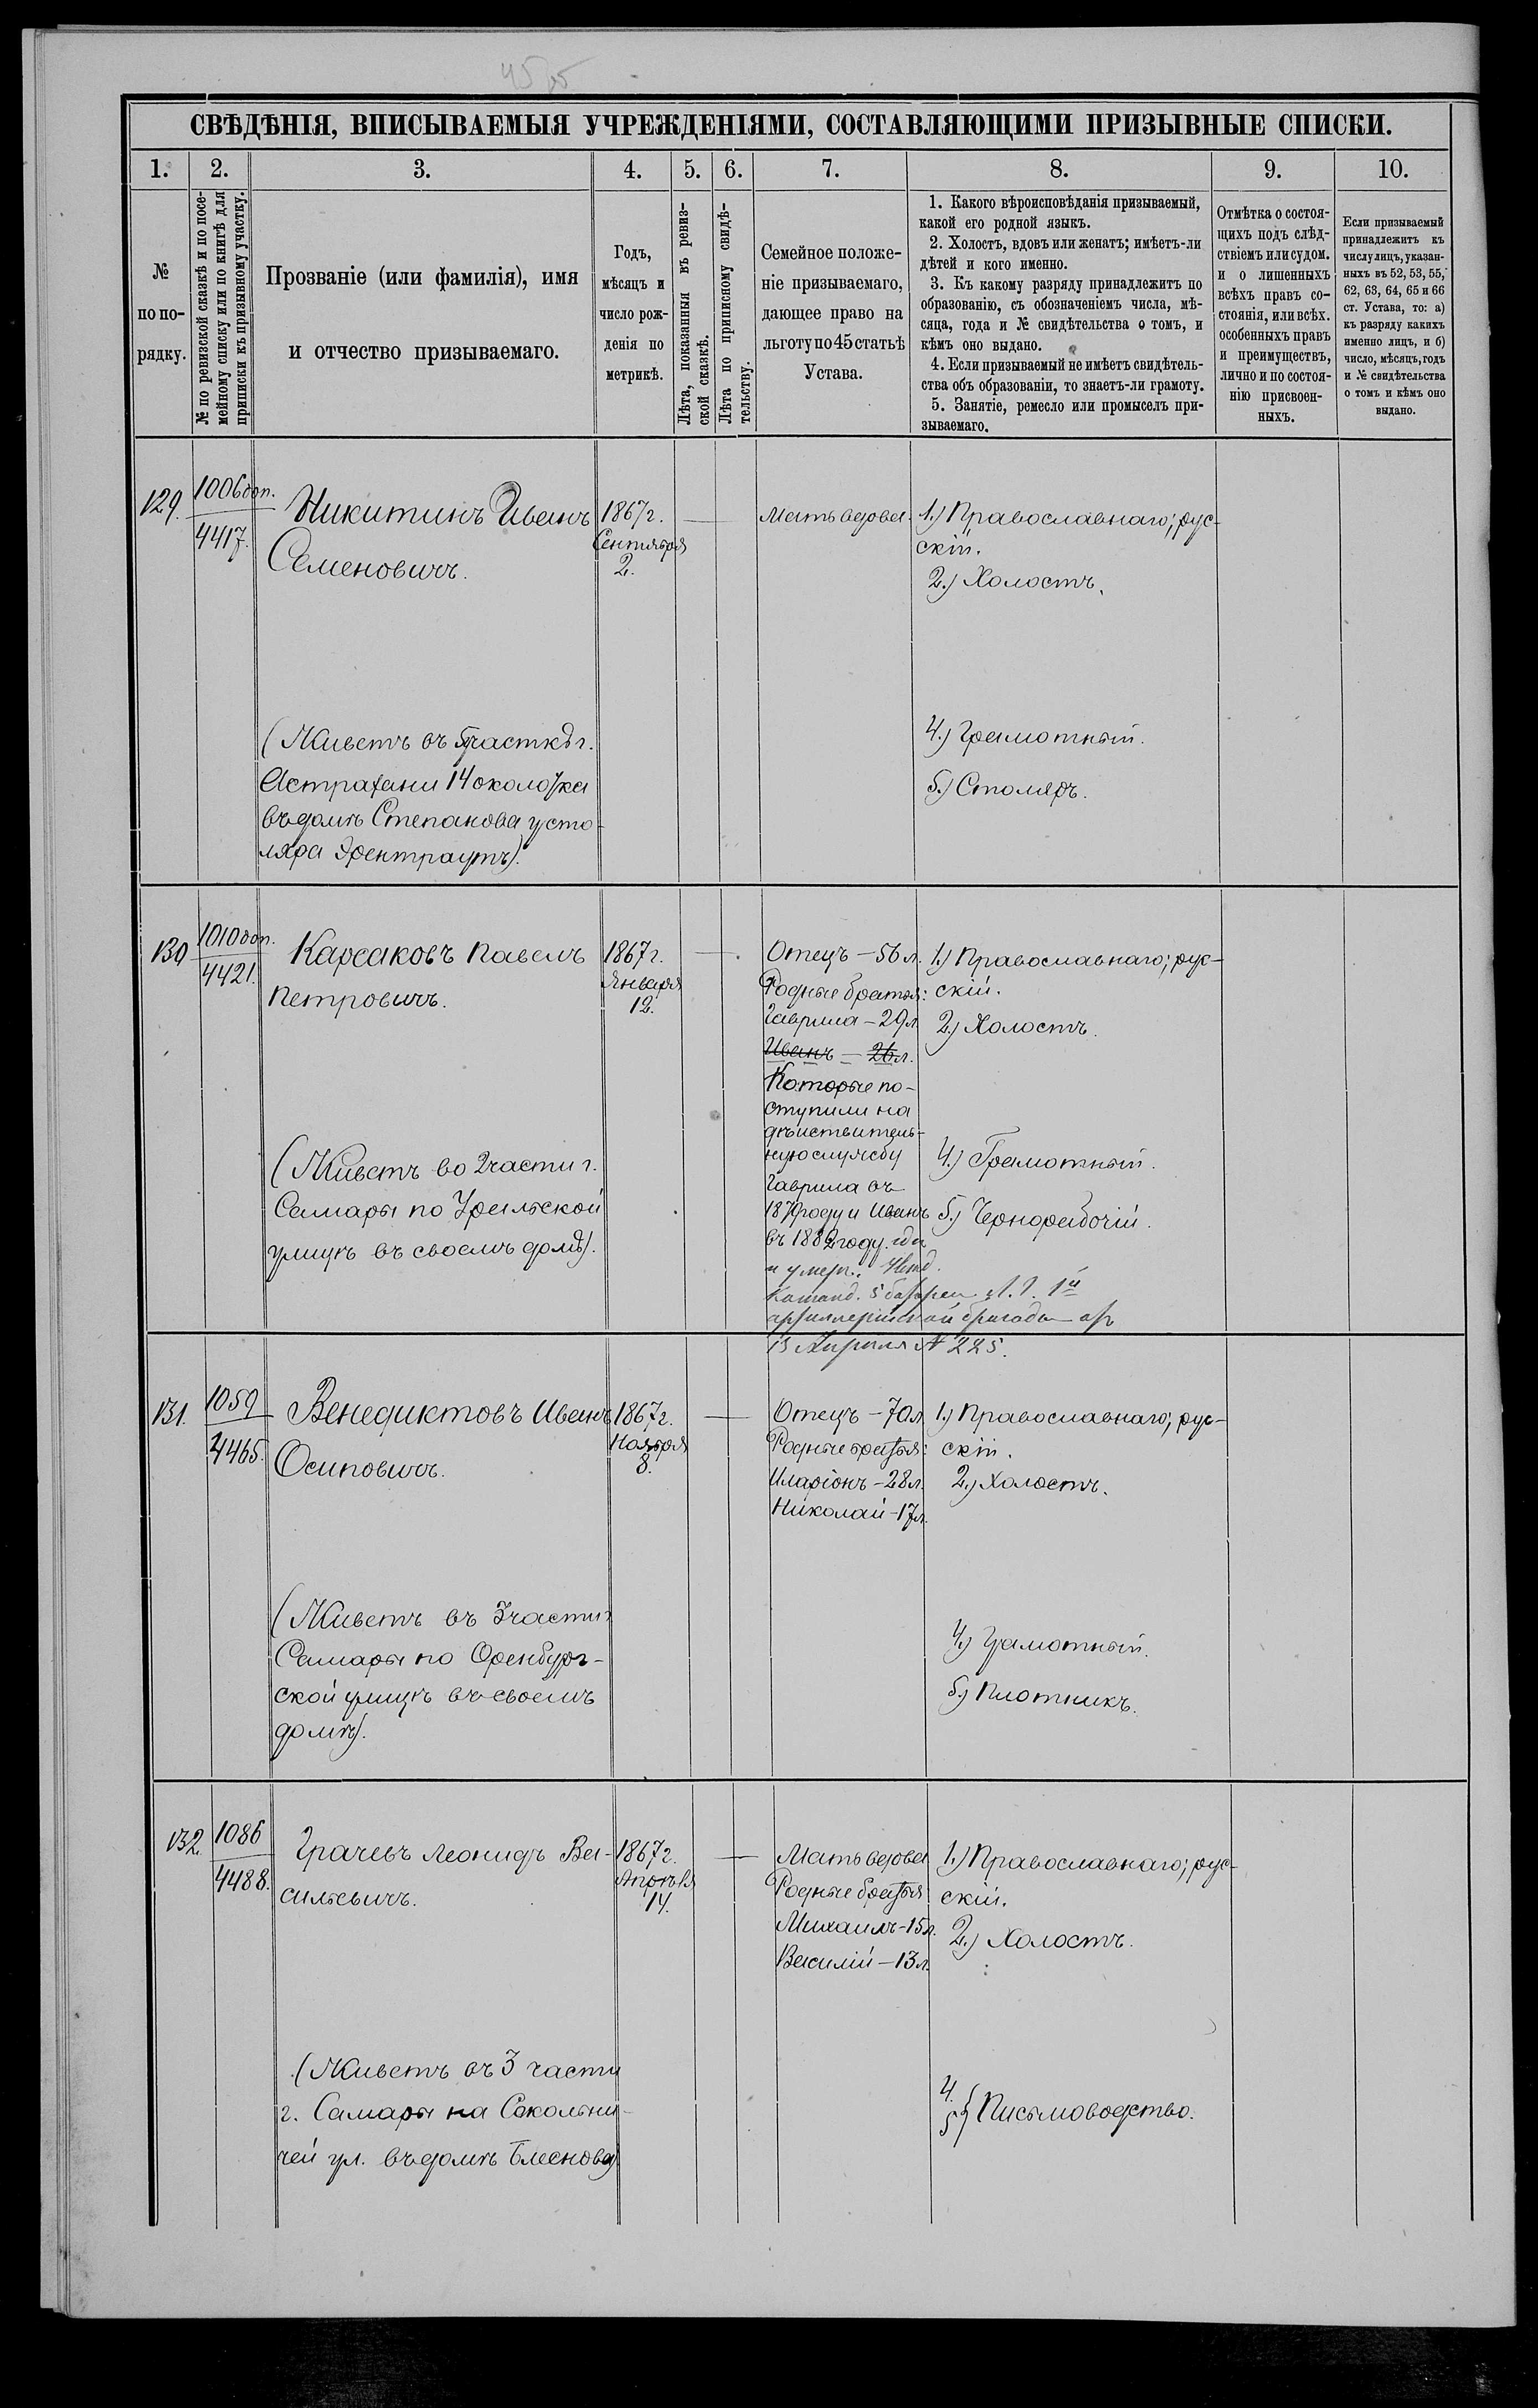 СВѢДѢНІЯ, ВПИСЫВАЕМЫЯ УЧРЕЖДЕНІЯМИ, СОСТАВЛЯЮЩИМИ ПРИЗЫВНЫЕ СПИСКИ.
1. 2. 3. 4. 5. 6. 7. 8. 9. 10.
№
по по-
рядку.
№ по ревизской сказкѣ и по посе-
мейному списку или по книгѣ для
приписки къ призывному участку.
Прозваніе (или фамилія), имя
и отчество призываемаго.
Годъ,
мѣсяцъ и
число рож-
денія по
метрикѣ.
Лѣта, показанныя въ ревиз-
ской сказкѣ.
Лѣта по приписному свидѣ-
тельству.
Семейное положе-
ніе призываемаго,
дающее право на
льготу по 45 статьѣ
Устава.
1. Какого вѣроисповѣданія призываемый,
какой его родной языкъ.
2. Холостъ, вдовъ или женатъ; имѣетъ-ли
дѣтей и кого именно.
3. Къ какому разряду принадлежитъ по
образованію, съ обозначеніемъ числа, мѣ-
сяца, года и № свидѣтельства о томъ, и
кѣмъ оно выдано.
4. Если призываемый не имѣетъ свидѣтель-
ства объ образованіи, то знаетъ-ли грамоту.
5. Занятіе, ремесло или промыселъ при-
зываемаго.
Отмѣтка о состоя-
щихъ подъ слѣд-
ствіемъ или судом.
и о лишенныхъ
всѣхъ правъ со-
стоянія, или всѣх.
особенныхъ правъ
и преимуществъ,
лично и по состоя-
нію присвоен-
ныхъ.
Если призываемый
принадлежитъ къ
числу лицъ, указан-
ныхъ въ 52, 53, 55,
62, 63, 64, 65 и 66
ст. Устава, то: а)
къ разряду какихъ
именно лицъ, и б)
число, мѣсяцъ, годъ
и № свидѣтельства
о томъ и кѣмъ оно
выдано.
129.
1006 доп.
4417.
Никитинъ Иванъ
Семеновичъ.
(Живетъ въ участкѣ г.
Астрахани 14 околотка
въ домѣ Степанова у сто-
ляра Эрентраутъ).
1867 г.
Сентября
2.
Мать вдова.
1.) Православнаго; рус-
скій.
2.) Холостъ.
4.) Грамотный.
5.) Столяръ.
130
1010 доп.
4421.
Карсаковъ Павелъ
Петровичъ.
(Живетъ во 2 части г.
Самары по Уральской
улицѣ въ своемъ домѣ).
1867 г.
Января
12.
Отецъ – 56 л.
Родные братья:
Гаврила – 29 л.
Иванъ – 26 л.
Которые по-
ступили на
дѣйствитель-
ную службу
Гаврила въ
1879 году и Иванъ
въ 1882 году. гдѣ
и умеръ.
Команд. 5 батареи Л. Г. 1й
артиллерійской бригады отъ
13 Апреля № 225.
1.) Православнаго; рус-
скій.
2.) Холостъ.
4.) Грамотный.
5.) Чернорабочій.
131.
1059
4465.
Венедиктовъ Иванъ
Осиповичъ.
(Живетъ въ 3 части г.
Самары по Оренбург-
ской улицѣ въ своемъ
домѣ).
1867 г.
Ноября
8.
Отецъ – 70 л.
Родные братья:
Иларіонъ – 28 л.
Николай – 17 л.
1.) Православнаго; рус-
скій.
2.) Холостъ.
4.) Грамотный.
5.) Плотникъ.
132.
1086
4488.
Грачевъ Леонидъ Ва-
сильевичъ.
(Живетъ въ 3 части
г. Самары на Сокольни-
чей ул. въ домѣ Блеснова)
1867 г.
Апрѣля
14.
Мать вдова
Родные братья
Михаилъ – 15 л.
Василій – 13 л.
1.) Православнаго; рус-
скій.
2.) Холостъ.
4.
5 } Письмоводство.